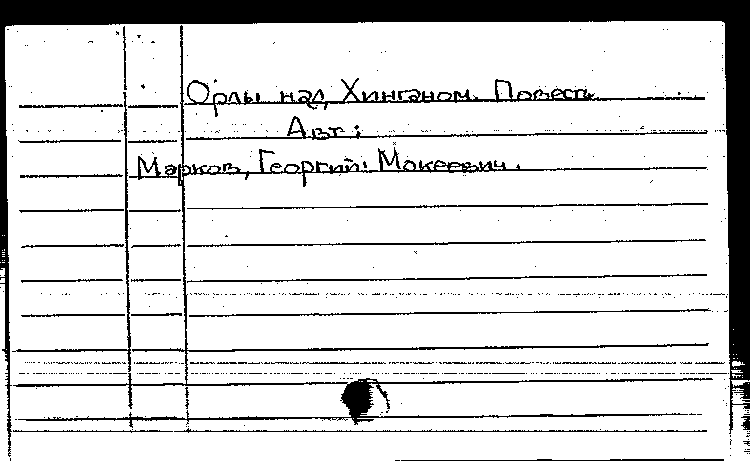 Орлы над Хинганом. Повесть
Авт:
Марков, Георгий Мокеевич.